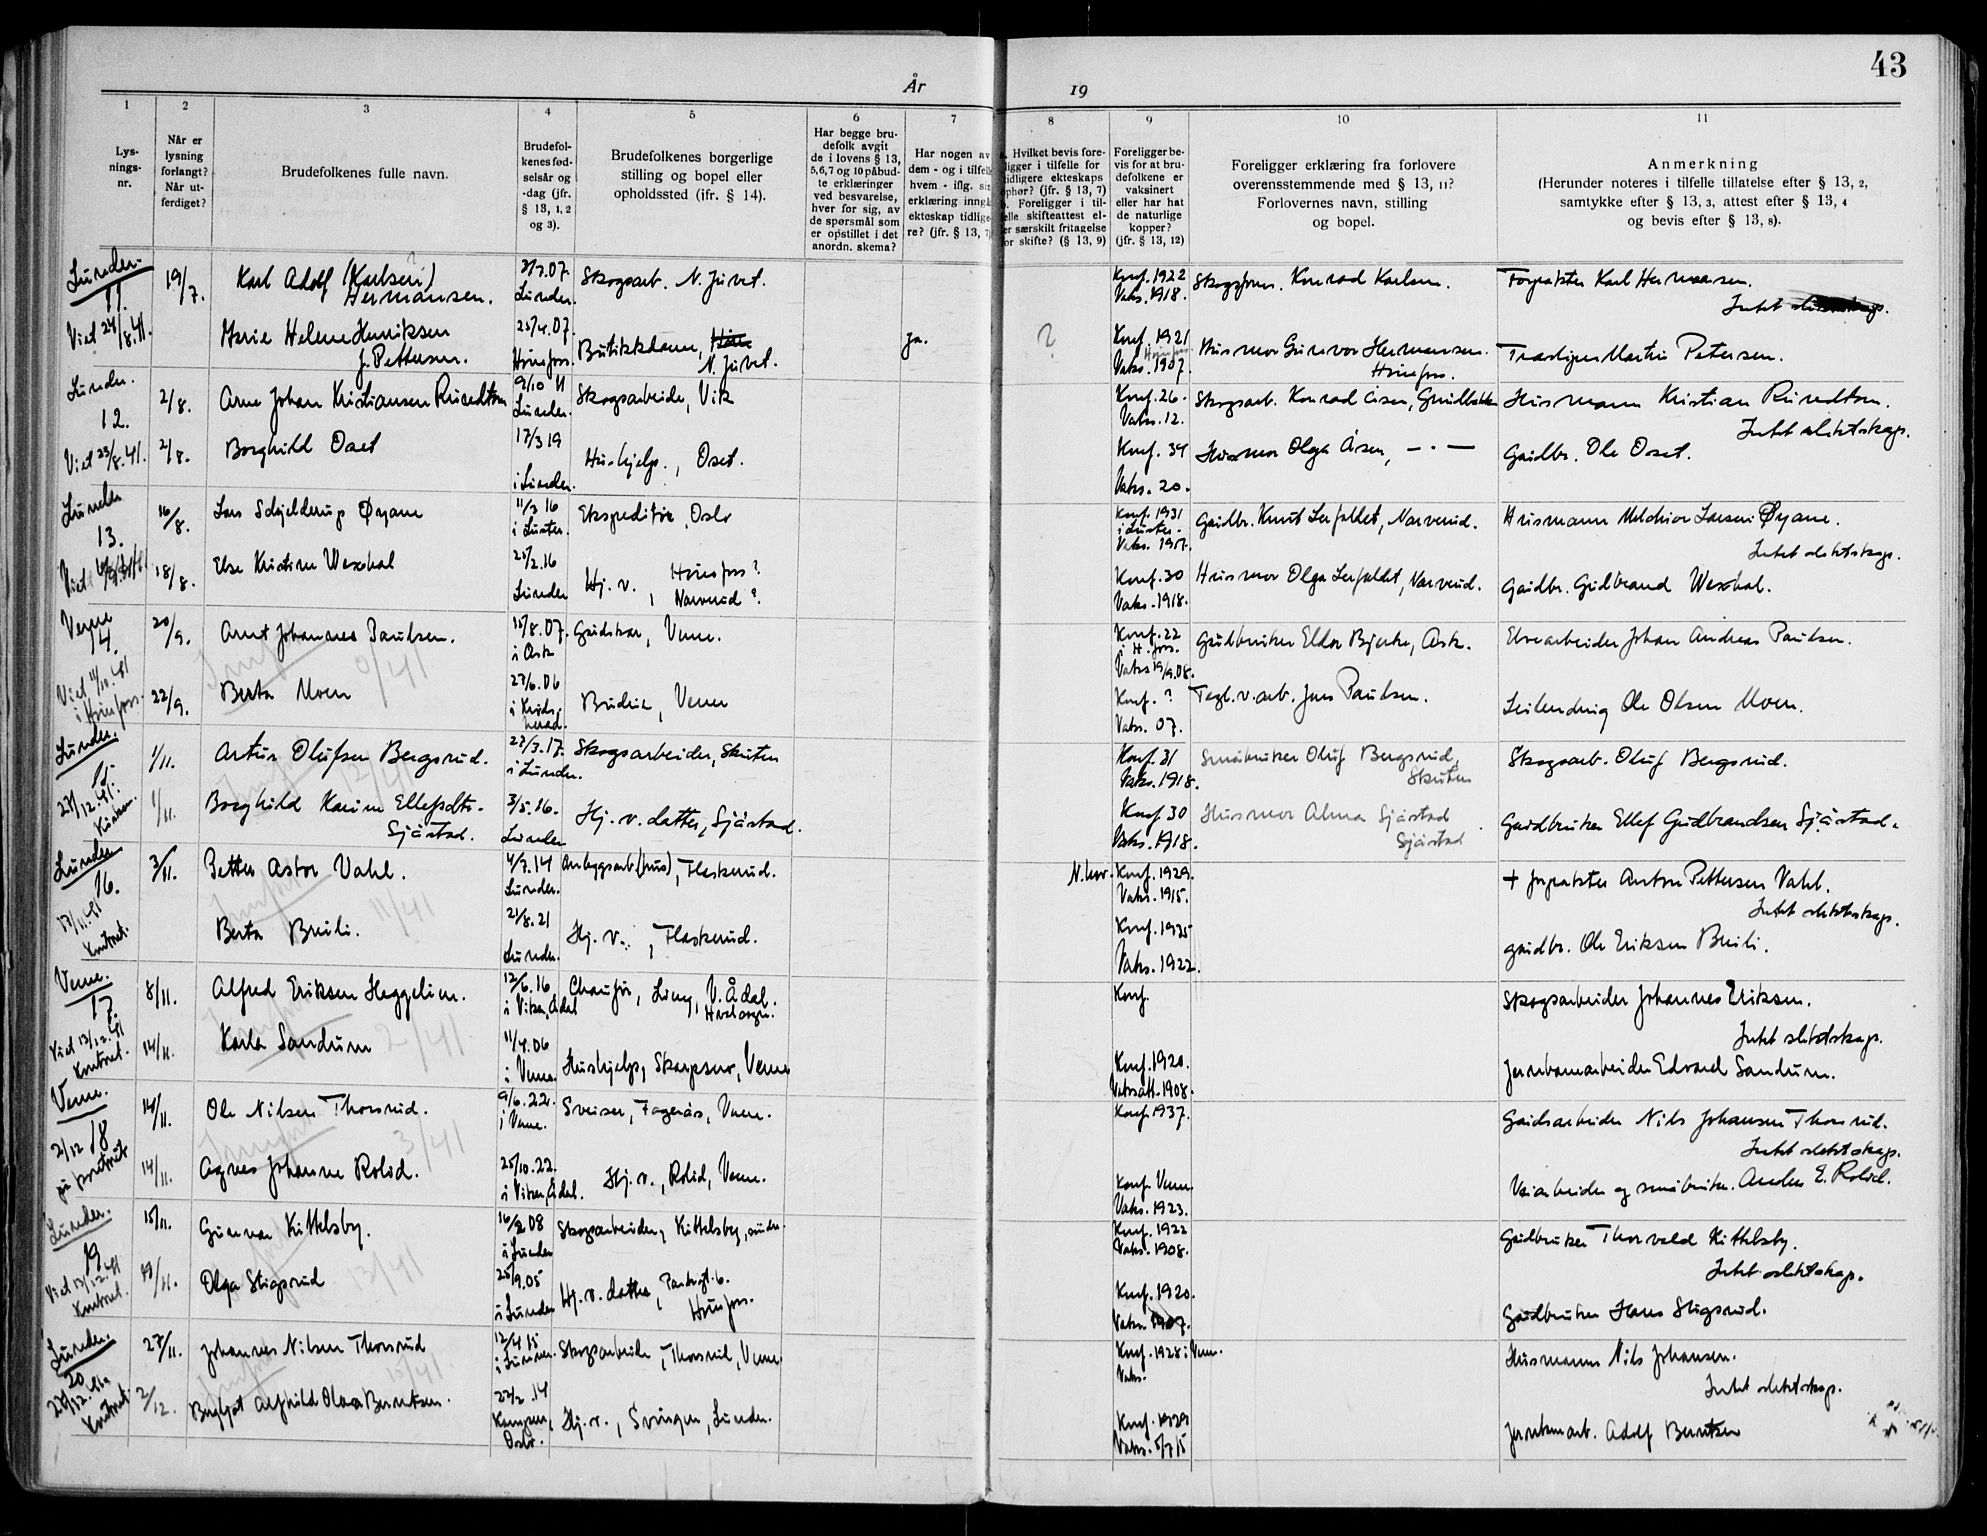 43
År 19
1 2 3 4 5 6 7 8 9 10 11
Lys-
nings-
nr.
Når er
lysning
forlangt?
Når ut-
ferdiget?
Brudefolkenes fulle navn.
Brudefol-
kenes fød-
selsår og
-dag (jfr.
§ 13, 1, 2
og 3).
Brudefolkenes borgerlige
stilling og bopel eller
opholdssted (ifr. § 14).
Har begge bru-
defolk avgit
de i lovens § 13,
5,6,7 og 10 påbud-
te erklæringer
ved besvarelse,
hver for sig, av
de spørsmål som
er opstillet i det
anordn. skema?
Har nogen av
dem - og i tilfelle
hvem - iflg. sin
erklæring inngå
ekteskap tidlige-
re? (jfr. § 13, 7)
a. Hvilket bevis fore-
ligger i tilfelle for
tidligere ekteskaps
ophør? (jfr. § 13, 7)
Foreligger i til-
felle skifteattest el-
er særskilt fritagelse
for skifte? (§ 13, 9)
Foreligger be-
vis for at bru-
defolkene er
vaksinert
eller har hat
de naturlige
kopper?
(jfr. § 13, 12)
Foreligger erklæring fra forlovere
overensstemmende med § 13, 11?
Forlovernes navn, stilling
og bopel.
Anmerkning
(Herunder noteres i tilfelle tillatelse efter § 13, 2,
samtykke efter § 13, 3, attest efter § 13, 4
og bevis efter § 13, 8).
Lunder.
11.
19/7.
Karl Adolf (Karlsen)
Hermansen.
Lunder.
Skogsarb. N. Juvet.
Konf. 1922
Vaks. 1918.
Konrad Karlsen.
Forpakter Karl Hermansen.
Intet
Viet 24/8.41.
Marie Helene Henriksen
f. Pettersen.
25/4.07.
Hønefoss.
Butikkdame,
N. Juvet.
Ja.
?
Konf. 1921
Hønefoss
Vaks. 1907.
Husmor Gunvor Hermansen.
Hønefoss.
Martin Petersen.
Lunder.
12.
2/8.
Arne Johan Kristiansen Rundtom
9/10 11
Lunder.
Skogsarbeider, Vik
Konf. 26.
Vaks. 12.
Skogsarb. Konrad Åsen,
Husmann Kristian Rundtom.
Intet slektskap.
Viet 23/8.41.
2/8.
Borghild Oset
17/3 19
i Lunder.
Hushjelp., Oset.
Konf. 34
Vaks. 20.
Husmor Olga Åsen, — · —
Gardbr. Ole Oset.
Lunder
13.
16/8.
Lars Schjelderup Øyane
11/3 16
i Luster.
Ekspeditør, Oslo
Konf. 1931
i Luster.
Gardbr. Knut Lerfaldet, Narverud.
Husmann Melchior Larsen Øyane.
Intet slektskap.
18/8.
Else Kristine Wexhal
25/2.16
Lunder
Hj. v., Hønefoss?
Narverud?
Konf. 30
Vaks. 1918.
Husmor Olga Lerfaldet, Narverud.
Gardbr. Gudbrand Wexhal.
Veme
14.
20/9.
Arnt Johannes Paulsen.
15/8.07.
i Ask
Gårdskar, Veme.
Konf. 22
i H.foss.
Vaks 19/9.08.
Gårdbruker Eldor Bjerke, Ask.
Elvearbeider Johan Andreas Paulsen.
Viet 11/10.41
i Hønefoss.
22/9.
Berta Moen
27/6.06
i Krøds-
herad.
Budeie, Veme
Konf. ?
Vaks. 07.
Tegl.v.arb. Jens Paulsen.
Leilending Ole Olsen Moen.
Lunder.
15.
1/11.
Artur Olufsen Bergsrud.
27/3.17.
i Lunder.
Skogsarbeider, Skuten
Konf. 31
Vaks. 1918.
Småbruker Oluf Bergsrud,
Skuten
Skogsarb. Oluf Bergsrud.
27/12.41.
Kirken.
1/11.
Borghild Karine Ellefsdtr.
Sjåstad.
3/5.16.
Lunder
Hj. v. datter, Sjåstad.
Konf 30
Vaks. 1918.
Husmor Alma Sjåstad
Sjåstad
Gardbruker Ellef Gudbrandsen Sjåstad.
Lunder
16.
3/11.
Petter Astor Vahl.
Lunder.
Anleggsarb. (hus), Flaskerud.
N. kor.
Konf. 1929.
Vaks. 1915.
+ forpakter Anton Pettersen Vahl.
Intet slektskap.
17/11.41
Kontoret.
Berta Breili.
21/8.21
Lunder.
Hj. v., Flaskerud.
Konf. 1935
Vaks. 1922.
gardbr. Ole Eriksen Breili.
Veme.
17.
8/11.
Alfred Eriksen Heggelien.
12/6.16
i Viker, Ådal
Chaufør, Ling, V. Ådal.
Konf.
Skogsarbeider Johannes Eriksen.
Intet slektskap.
Viet 13/12.41
Kontoret.
14/11.
Karla Sandum
11/4.06
i Veme.
Hushjelp, Skarpsno, Veme
Konf. 1920.
Vaksatt. 1908.
Jernbanearbeider Edvard Sandum.
Veme.
18
14/11.
Ole Nilsen Thorsrud.
9/6.22.
i Veme.
Sveiser, Fagerås, Veme.
Konf. 1937.
Gardsarbeider Nils Johansen Thorsrud.
Intet slektskap.
21/12
på kontoret
14/11.
Agnes Johanne Rolid.
25/10.22.
i Viker, Ådal.
Hj. v., Rolid, Veme.
Konf. Veme
Vaks. 1923.
Veiarbeider og småbruker. Anders E. Rolid.
Lunder.
19
15/11.
Gunnar Kittelsby.
16/2.08
i Lunder
Skogsarbeider, Kittelsby,
Konf. 1922
Vaks. 1908.
Gårdbruker Thorvald Kittelsby.
Intet slektskap.
Viet 13/12.41
Kontoret.
19/11.
Olga Stigsrud
25/9.05
i Lunder
Hj. v. datter,
Hønefoss.
Konf. 1920.
Vaks. 1907.
Gardbruker Hans Stigsrud.
Lunder.
20
27/11.
Johannes Nilsen Thorsrud
12/4 15
i Lunder.
Skogsarbeider, Thorsrud, Veme
Konf. 1928 i Veme.
Vaks.
Husmann Nils Johansen.
Intet slektskap.
Kontoret.
2/12.
Bergljot Alfhild Olava Berntsen.
22/2.14
Kampen,
Oslo.
Hj. v., Svingen, Lunder.
Konf. 1929
Vaks. 5/7 15
Jernbanearb. Adolf Berntsen